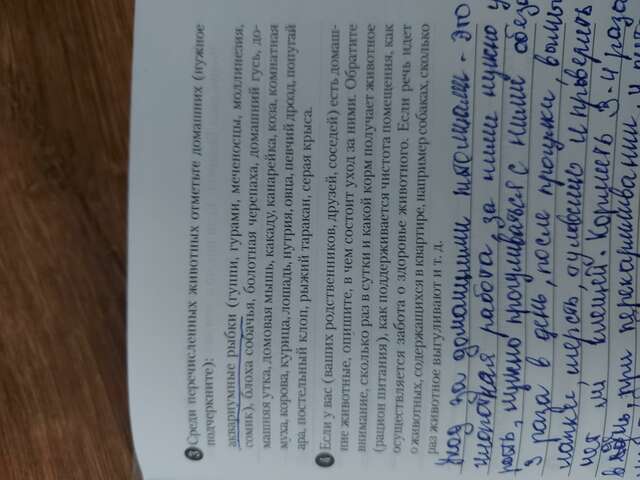 3 Среди перечисленных животных отметьте домашних (нужное
подчеркните):
аквариумные рыбки (гуппи, гурами, меченосцы, моллинезия,
сомик), блоха собачья, болотная черепаха, домашний гусь, до-
машняя утка, домовая мышь, какаду, канарейка, коза, комнатная
муха, корова, курица, лошадь, нутрия, овца, певчий дрозд, попугай
ара, постельный клоп, рыжий таракан, серая крыса.
4 Если у вас (ваших родственников, друзей, соседей) есть домаш-
ние животные, опишите, в чем состоит уход за ними. Обратите
внимание, сколько раз в сутки и какой корм получает животное
(рацион питания), как поддерживается чистота помещения, как
осуществляется забота о здоровье животного. Если речь идет
о животных, содержащихся в квартире, например собаках, сколько
раз животное выгуливают и т. д.
Уход за домашними питомцами - это
работа за ними нужно у
нужно прогуливаться с ними
3 раза в день, после прогулки,
лапки, шерсть, и проверять
нет ли клещей. Кормить 3-4 раза
в день, при перекармливании